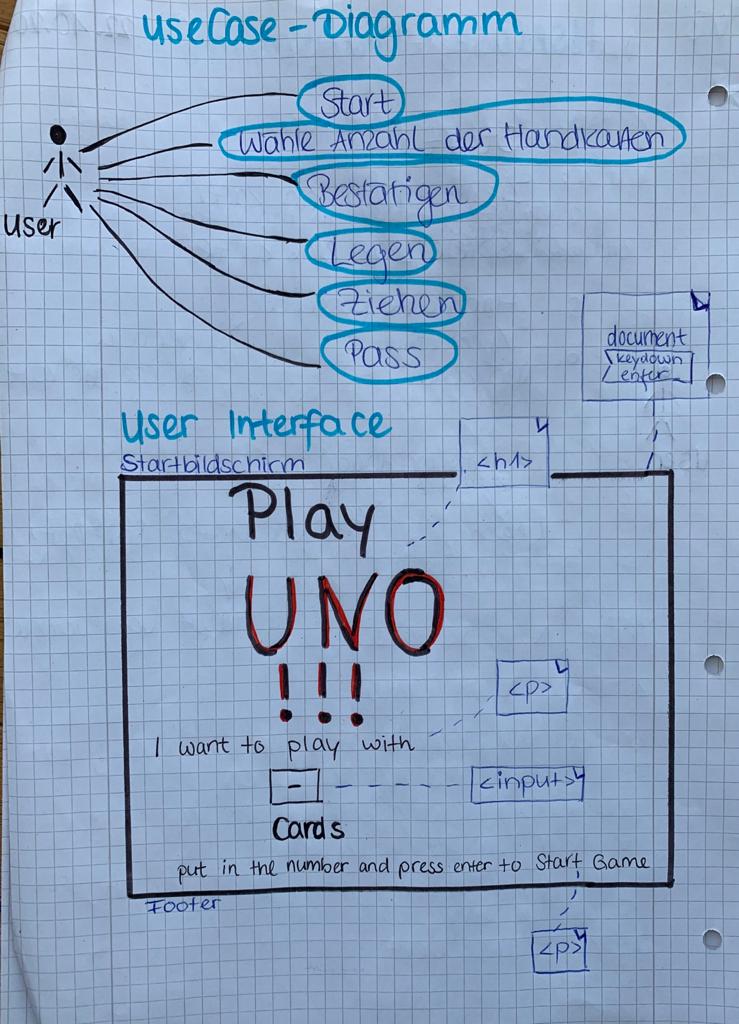 useCase - Diagramm
Start
Wähle Anzahl der Handkarten
Bestätigen
user
Legen
Ziehen
Pass
document
keydown
enter
user Interface
Startbildschirm
<h1>
Play
UNO
!!!
<p>
I want to play with
-
<input>
Cards
put in the number and press enter to Start Game
Footer
<p>